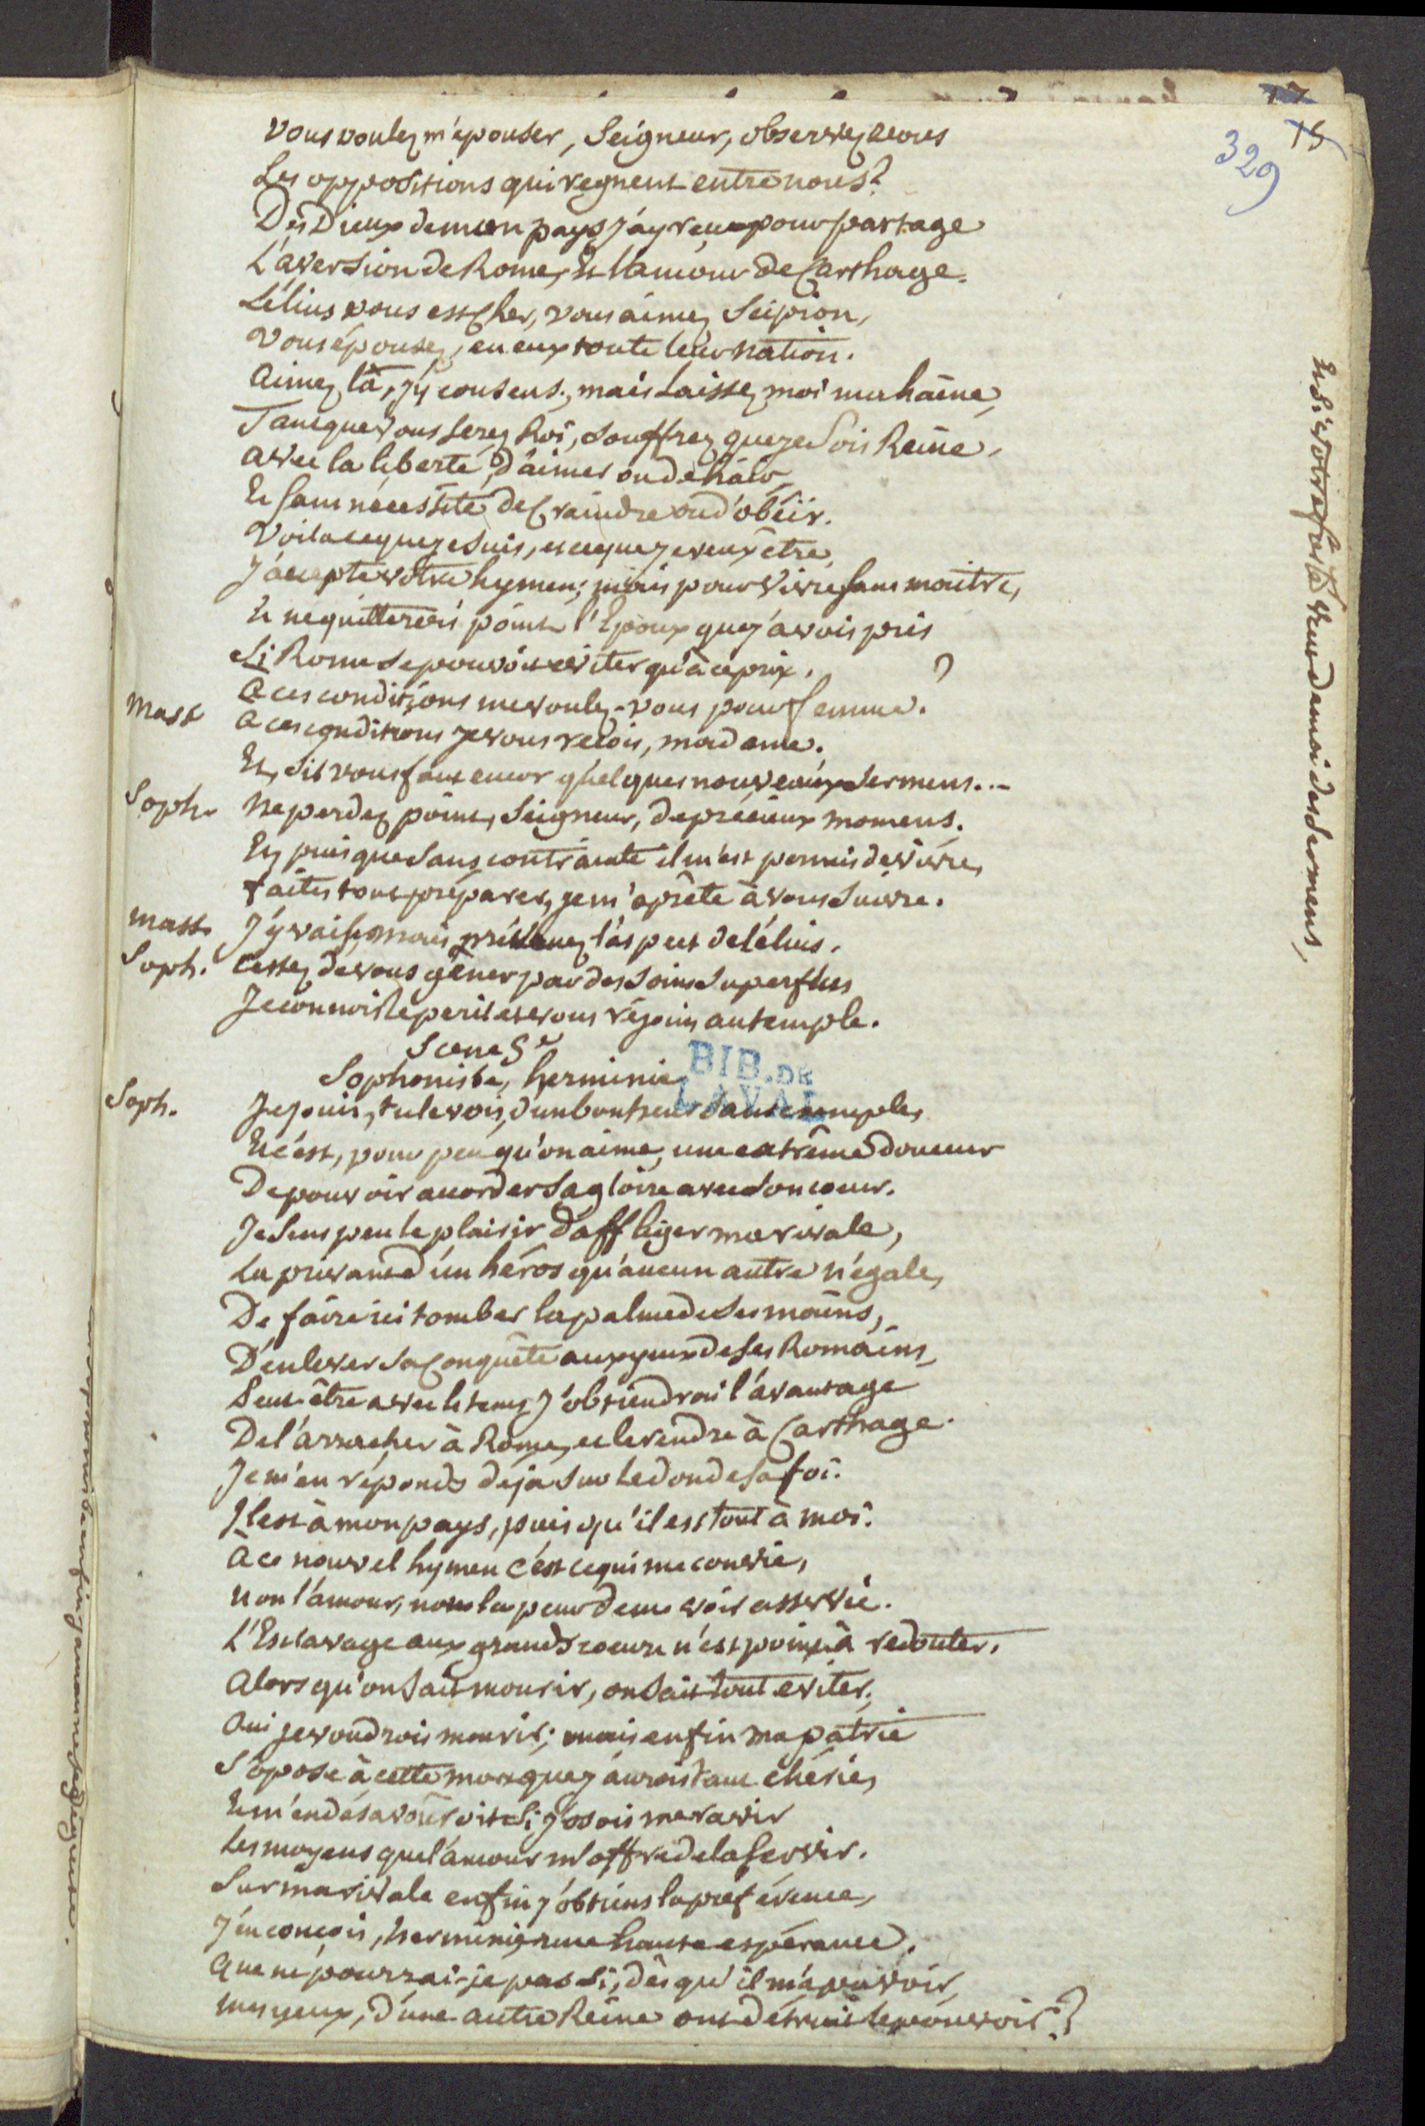 15
329
Vous voulez m'épouser, Seigneur, observez vous
Les oppositions qui regnent entre nous?
Des Dieux de mon pays j'ay reçu pour partage
L'aversion de Rome, Et l'amour de Carthage.
Lélius vous est Cher, vous aimez Scipion,
Vous épousez, en eux toute leur nation.
Aimez là, j'y consens; mais laissez moi ma haine,
Tant que vous serez Roi, souffrez que je sois Reine,
avec la liberté, d'aimer ou de haïr,
Et sans nécessité de Craindre ou d'obéir.
Voila ce que je suis, et ce que je veux être,
J'accepte votre hymen; mais pour vivre sans maitre,
Et ne quitterois point l'Epoux que j'avois pris
Si Rome se pouvoit eviter qu'à ce prix.
A ces conditions me voulez-vous pour femme?
Mass A ces conditions je vous reçois, madame.
Et, s'il vous faut encor quelques nouveaux sermens...
Soph. Ne perdez point, Seigneur, de précieux momens.
Et puisque sans contrainte il m'est permis de vivre,
faites tout préparer, je m'aprête à vous suivre.
Mass. J'y vais; mais prévenez l'aspect de Lélius.
Soph. Cessez de vous gêner par des soins superflus
Je connois le peril et vous rejoins au temple.
Scene 5e
Sophonisbe, herminie
BIB. DE
LAVAL
Soph. Je jouis, tu le vois, d'un bonheur sans exemple,
Et c'est, pour peu qu'on aime, une extrême douceur
De pouvoir acorder sa gloire avec son coeur.
Je sens peu le plaisir d'affliger ma rivale,
La privant d'un héros qu'aucun autre n'égale,
De faire ici tomber la palme de ses mains,
D'enlever sa Conquête aux yeux de ses Romains,
Peut-être avec le tems j'obtiendrai l'avantage
De l'arracher à Rome, et le rendre à Carthage.
Je m'en réponds déja sur le don de sa foi.
Il est à mon pays, puis qu'il est tout à moi.
À ce nouvel hymen c'est ce qui me convie,
Non l'amour, non la peur de me voir asservie.
L'Esclavage aux grands coeurs n'est point à redouter.
Alors qu'on sait mourir, on sait tout eviter;
Oui je voudrois mourir; mais enfin ma patrie
S'opose à cette mort que j'aurois tant chérie,
Et m'en désavoûroit si j'osois me ravir
Les moyens que l'amour m'offre de la servir.
Sur ma rivale enfin j'obtiens la préférence,
J'en conçois, herminie, une haute espérance.
Que ne pourrai-je pas si, dès qu'il m'a pu voir,
Mes yeux, d'une autre Reine ont détruit le pouvoir?